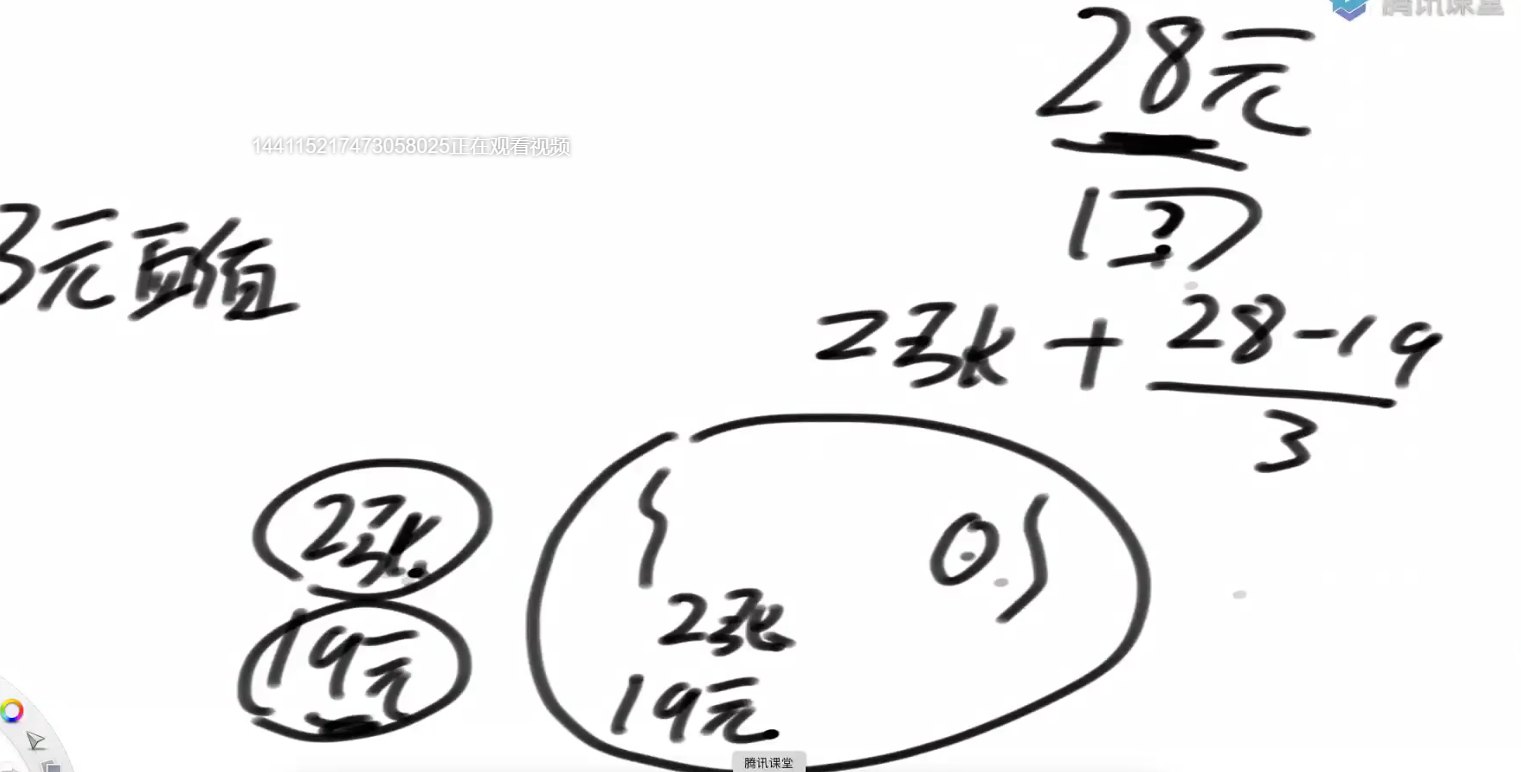 腾讯课堂
28元
144115217473058025正在观看视频
1?
3元面值
2张 + 28-19
3
2张
{ 0.}
2张
19元
19元
腾讯课堂